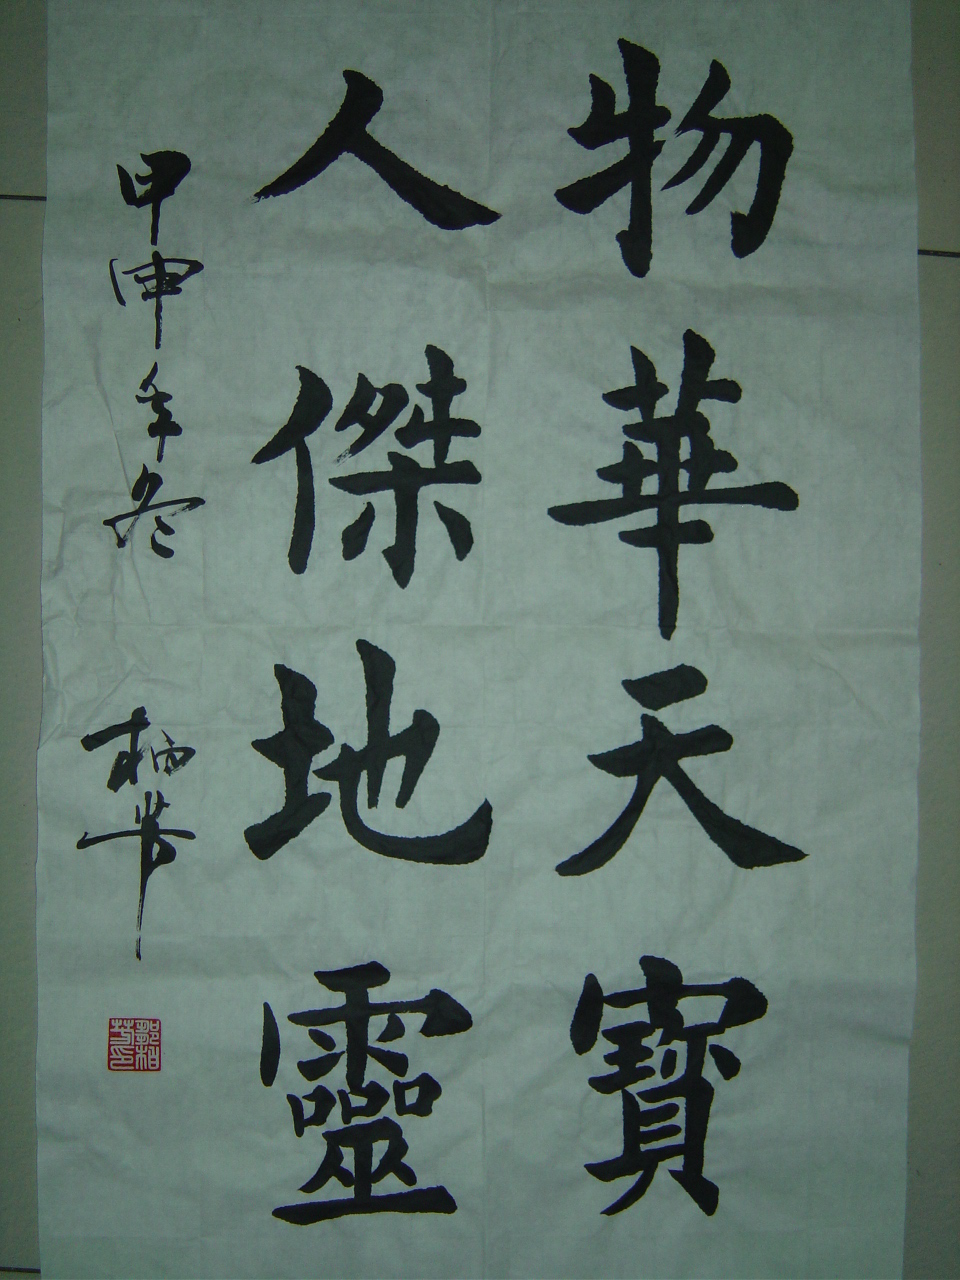 物華天寶
人傑地靈
甲申年冬